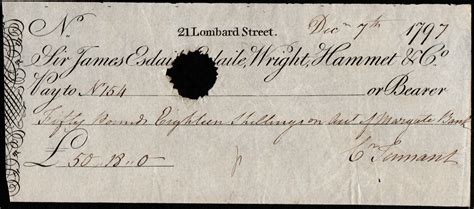 No. 21 Lombard Street. Decr 7th 1797
Sir James Esdaile, Esdaile, Wright, Hammet & Co.
Pay to No 154 or Bearer
Fifty Pounds Eighteen Shillings on Acct of Margate Bank
£ 50-18-0 Tennant